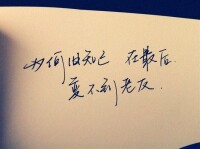 为何旧知己 在最后
变不到老友